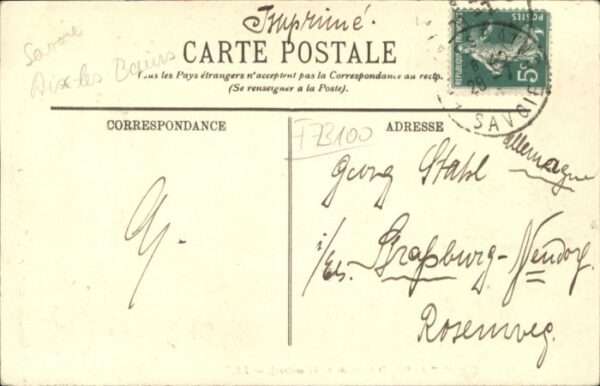 Imprimé.
Savoie
Aix les Bains
CARTE POSTALE
Tous les Pays étrangers n'acceptent pas la Correspondance au recto.
(Se renseigner à la Poste.)
5c
SAVOIE
CORRESPONDANCE
ADRESSE
F73100
Allemagne
Georg Stahl
i/Els. Straßburg-Neudorf
Rosenweg